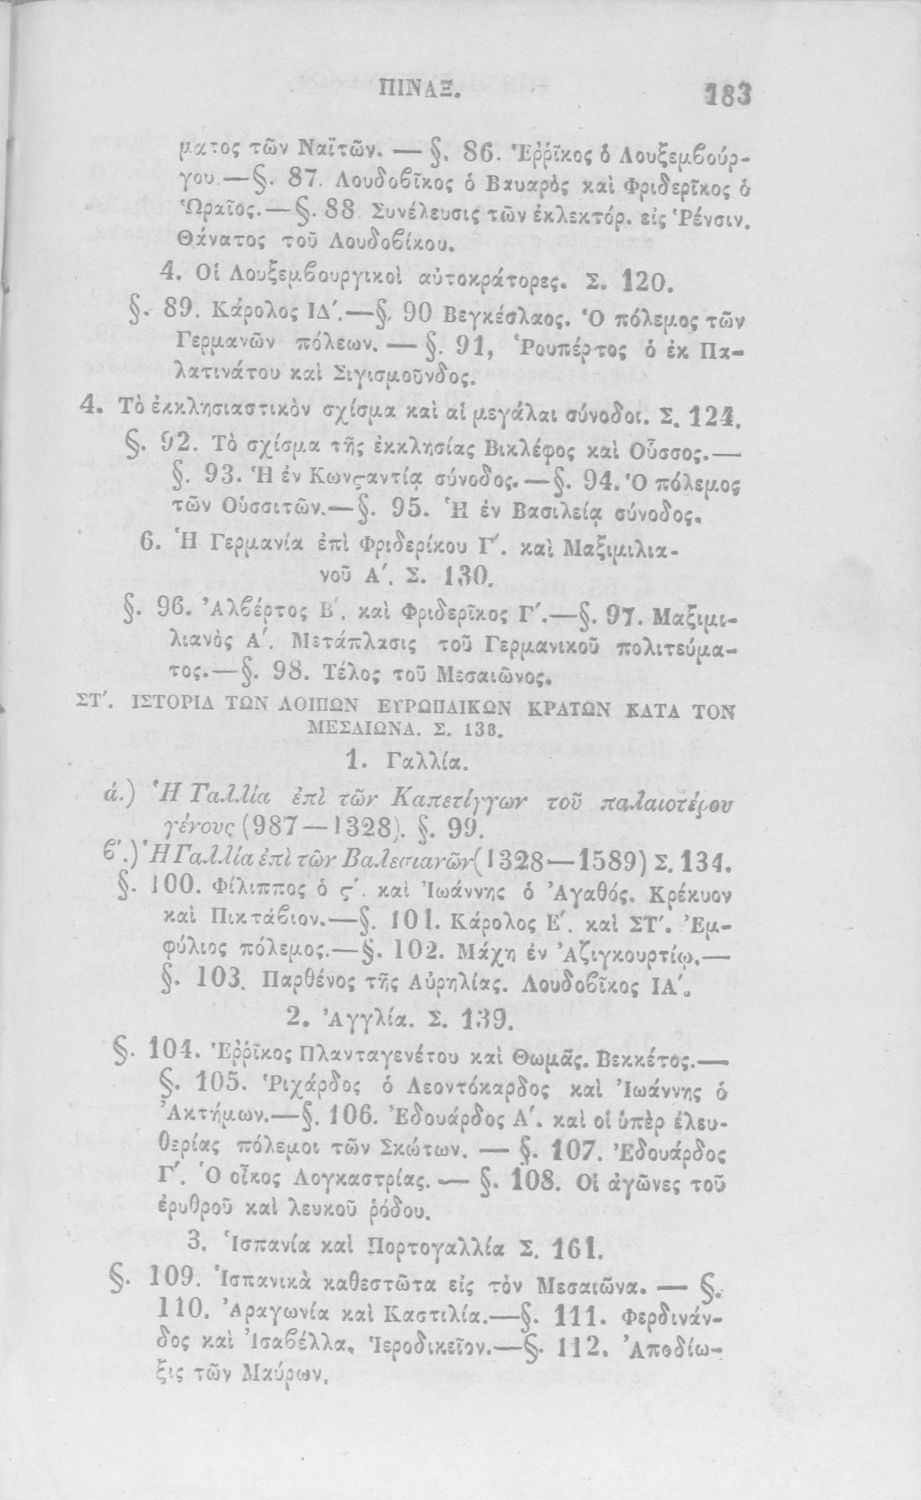 ΠΙΝΑΞ. 183
ματος τῶν Ναϊτῶν. — §. 86. Ἑῤῥῖκος ὁ Λουξεμβούρ-
γου.—§. 87. Λουδοβῖκος ὁ Βαυαρὸς καὶ Φριδερῖκος ὁ
Ὡραῖος.—§. 88 Συνέλευσις τῶν ἐκλεκτόρ. εἰς Ῥένσιν.
Θάνατος τοῦ Λουδοβίκου.
4. Οἱ Λουξεμβουργικοὶ αὐτοκράτορες. Σ. 120.
§. 89. Κάρολος ΙΔ΄.—§. 90 Βεγκέσλαος. Ὁ πόλεμος τῶν
Γερμανῶν πόλεων. — §. 91, Ῥουπέρτος ὁ ἐκ Πα-
λατινάτου καὶ Σιγισμοῦνδος.
4. Τὸ ἐκκλησιαστικὸν σχίσμα καὶ αἱ μεγάλαι σύνοδοι. Σ. 124.
§. 92. Τὸ σχίσμα τῆς ἐκκλησίας Βικλέφος καὶ Οὖσσος.—
§. 93. Ἡ ἐν Κωνϛαντίᾳ σύνοδος.—§. 94. Ὁ πόλεμος
τῶν Οὑσσιτῶν.—§. 95. Ἡ ἐν Βασιλείᾳ σύνοδος.
6. Ἡ Γερμανία ἐπὶ Φριδερίκου Γ΄. καὶ Μαξιμιλια-
νοῦ Α΄. Σ. 130.
§. 96. Ἀλβέρτος Β΄. καὶ Φριδερῖκος Γ΄.—§. 97. Μαξιμι-
λιανὸς Α΄. Μετάπλασις τοῦ Γερμανικοῦ πολιτεύμα-
τος.—§. 98. Τέλος τοῦ Μεσαιῶνος.
ΣΤ΄. ΙΣΤΟΡΙΑ ΤΩΝ ΛΟΙΠΩΝ ΕΥΡΩΠΑΙΚΩΝ ΚΡΑΤΩΝ ΚΑΤΑ ΤΟΝ
ΜΕΣΑΙΩΝΑ. Σ. 133.
1. Γαλλία.
ά.) Ἡ Γαλλία ἐπὶ τῶν Καπετίγγων τοῦ παλαιοτέρου
γένους (987—1328). §. 99.
β΄.) Ἡ Γαλλία ἐπὶ τῶν Βαλεσιανῶν (1328—1589) Σ. 134.
§. 100. Φίλιππος ὁ ϛ΄. καὶ Ἰωάννης ὁ Ἀγαθός. Κρέκυον
καὶ Πικτάβιον.—§. 101. Κάρολος Ε΄. καὶ ΣΤ΄. Ἐμ-
φύλιος πόλεμος.—§. 102. Μάχη ἐν Ἀζιγκουρτίῳ.—
§. 103. Παρθένος τῆς Αὐρηλίας. Λουδοβῖκος ΙΑ΄.
2. Ἀγγλία. Σ. 139.
§. 104. Ἑῤῥῖκος Πλανταγενέτου καὶ Θωμᾶς. Βεκκέτος.—
§. 105. Ῥιχάρδος ὁ Λεοντόκαρδος καὶ Ἰωάννης ὁ
Ἀκτήμων.—§. 106. Ἐδουάρδος Α΄. καὶ οἱ ὑπὲρ ἐλευ-
θερίας πόλεμοι τῶν Σκώτων. — §. 107. Ἐδουάρδος
Γ΄. Ὁ οἶκος Λογκαστρίας. — §. 108. Οἱ ἀγῶνες τοῦ
ἐρυθροῦ καὶ λευκοῦ ῥόδου.
3. Ἱσπανία καὶ Πορτογαλλία Σ. 161.
§. 109. Ἱσπανικὰ καθεστῶτα εἰς τὸν Μεσαιῶνα. — §.
110. Ἀραγωνία καὶ Καστιλία.—§. 111. Φερδινάν-
δος καὶ Ἰσαβέλλα. Ἱεροδικεῖον.—§. 112. Ἀποδίω-
ξις τῶν Μαύρων.